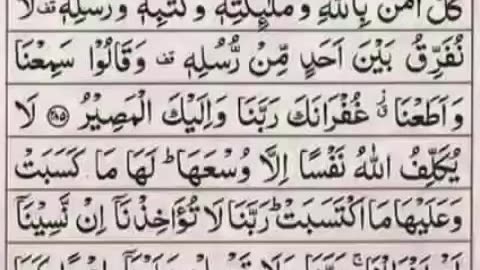 كُلٌّ اٰمَنَ بِاللّٰهِ وَمَلٰٓئِكَتِهٖ وَكُتُبِهٖ وَرُسُلِهٖ ۟ لَا
نُفَرِّقُ بَيْنَ اَحَدٍ مِّنْ رُّسُلِهٖ ۟ وَقَالُوْا سَمِعْنَا
وَاَطَعْنَا ۫ غُفْرَانَكَ رَبَّنَا وَاِلَيْكَ الْمَصِيْرُ ﴿۲۸۵﴾ لَا
يُكَلِّفُ اللّٰهُ نَفْسًا اِلَّا وُسْعَهَا ؕ لَهَا مَا كَسَبَتْ
وَعَلَيْهَا مَا اكْتَسَبَتْ ؕ رَبَّنَا لَا تُؤَاخِذْنَاۤ اِنْ نَّسِيْنَاۤ